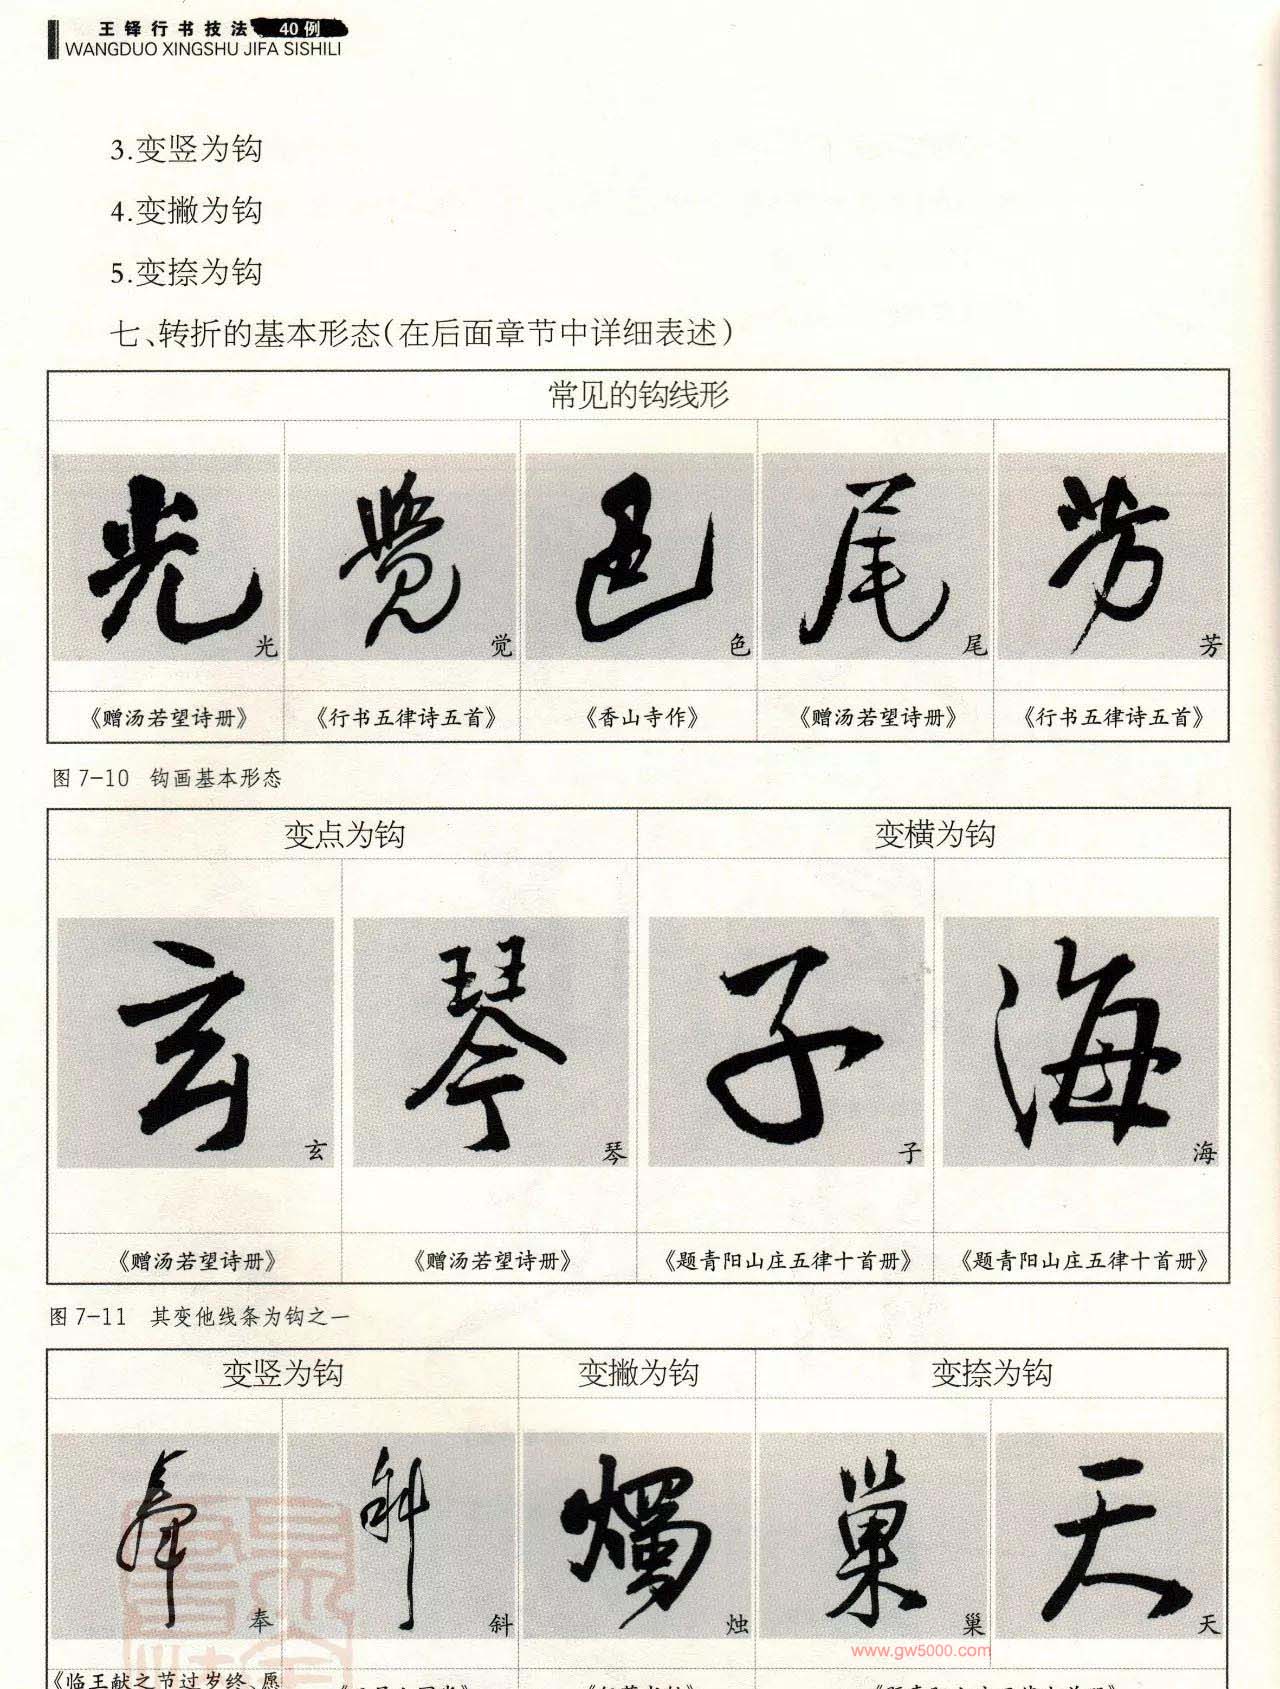 王铎行书技法 40例
WANGDUO XINGSHU JIFA SISHILI
3.变竖为钩
4.变撇为钩
5.变捺为钩
七、转折的基本形态(在后面章节中详细表述)
常见的钩线形
光 觉 色 尾 芳
《赠汤若望诗册》 《行书五律诗五首》 《香山寺作》 《赠汤若望诗册》 《行书五律诗五首》
图 7-10 钩画基本形态
变点为钩 变横为钩
玄 琴 子 海
《赠汤若望诗册》 《赠汤若望诗册》 《题青阳山庄五律十首册》 《题青阳山庄五律十首册》
图 7-11 其变他线条为钩之一
变竖为钩 变撇为钩 变捺为钩
奉 斜 烛 巢 天
www.gw5000.com
《临王献之节过岁终、愿